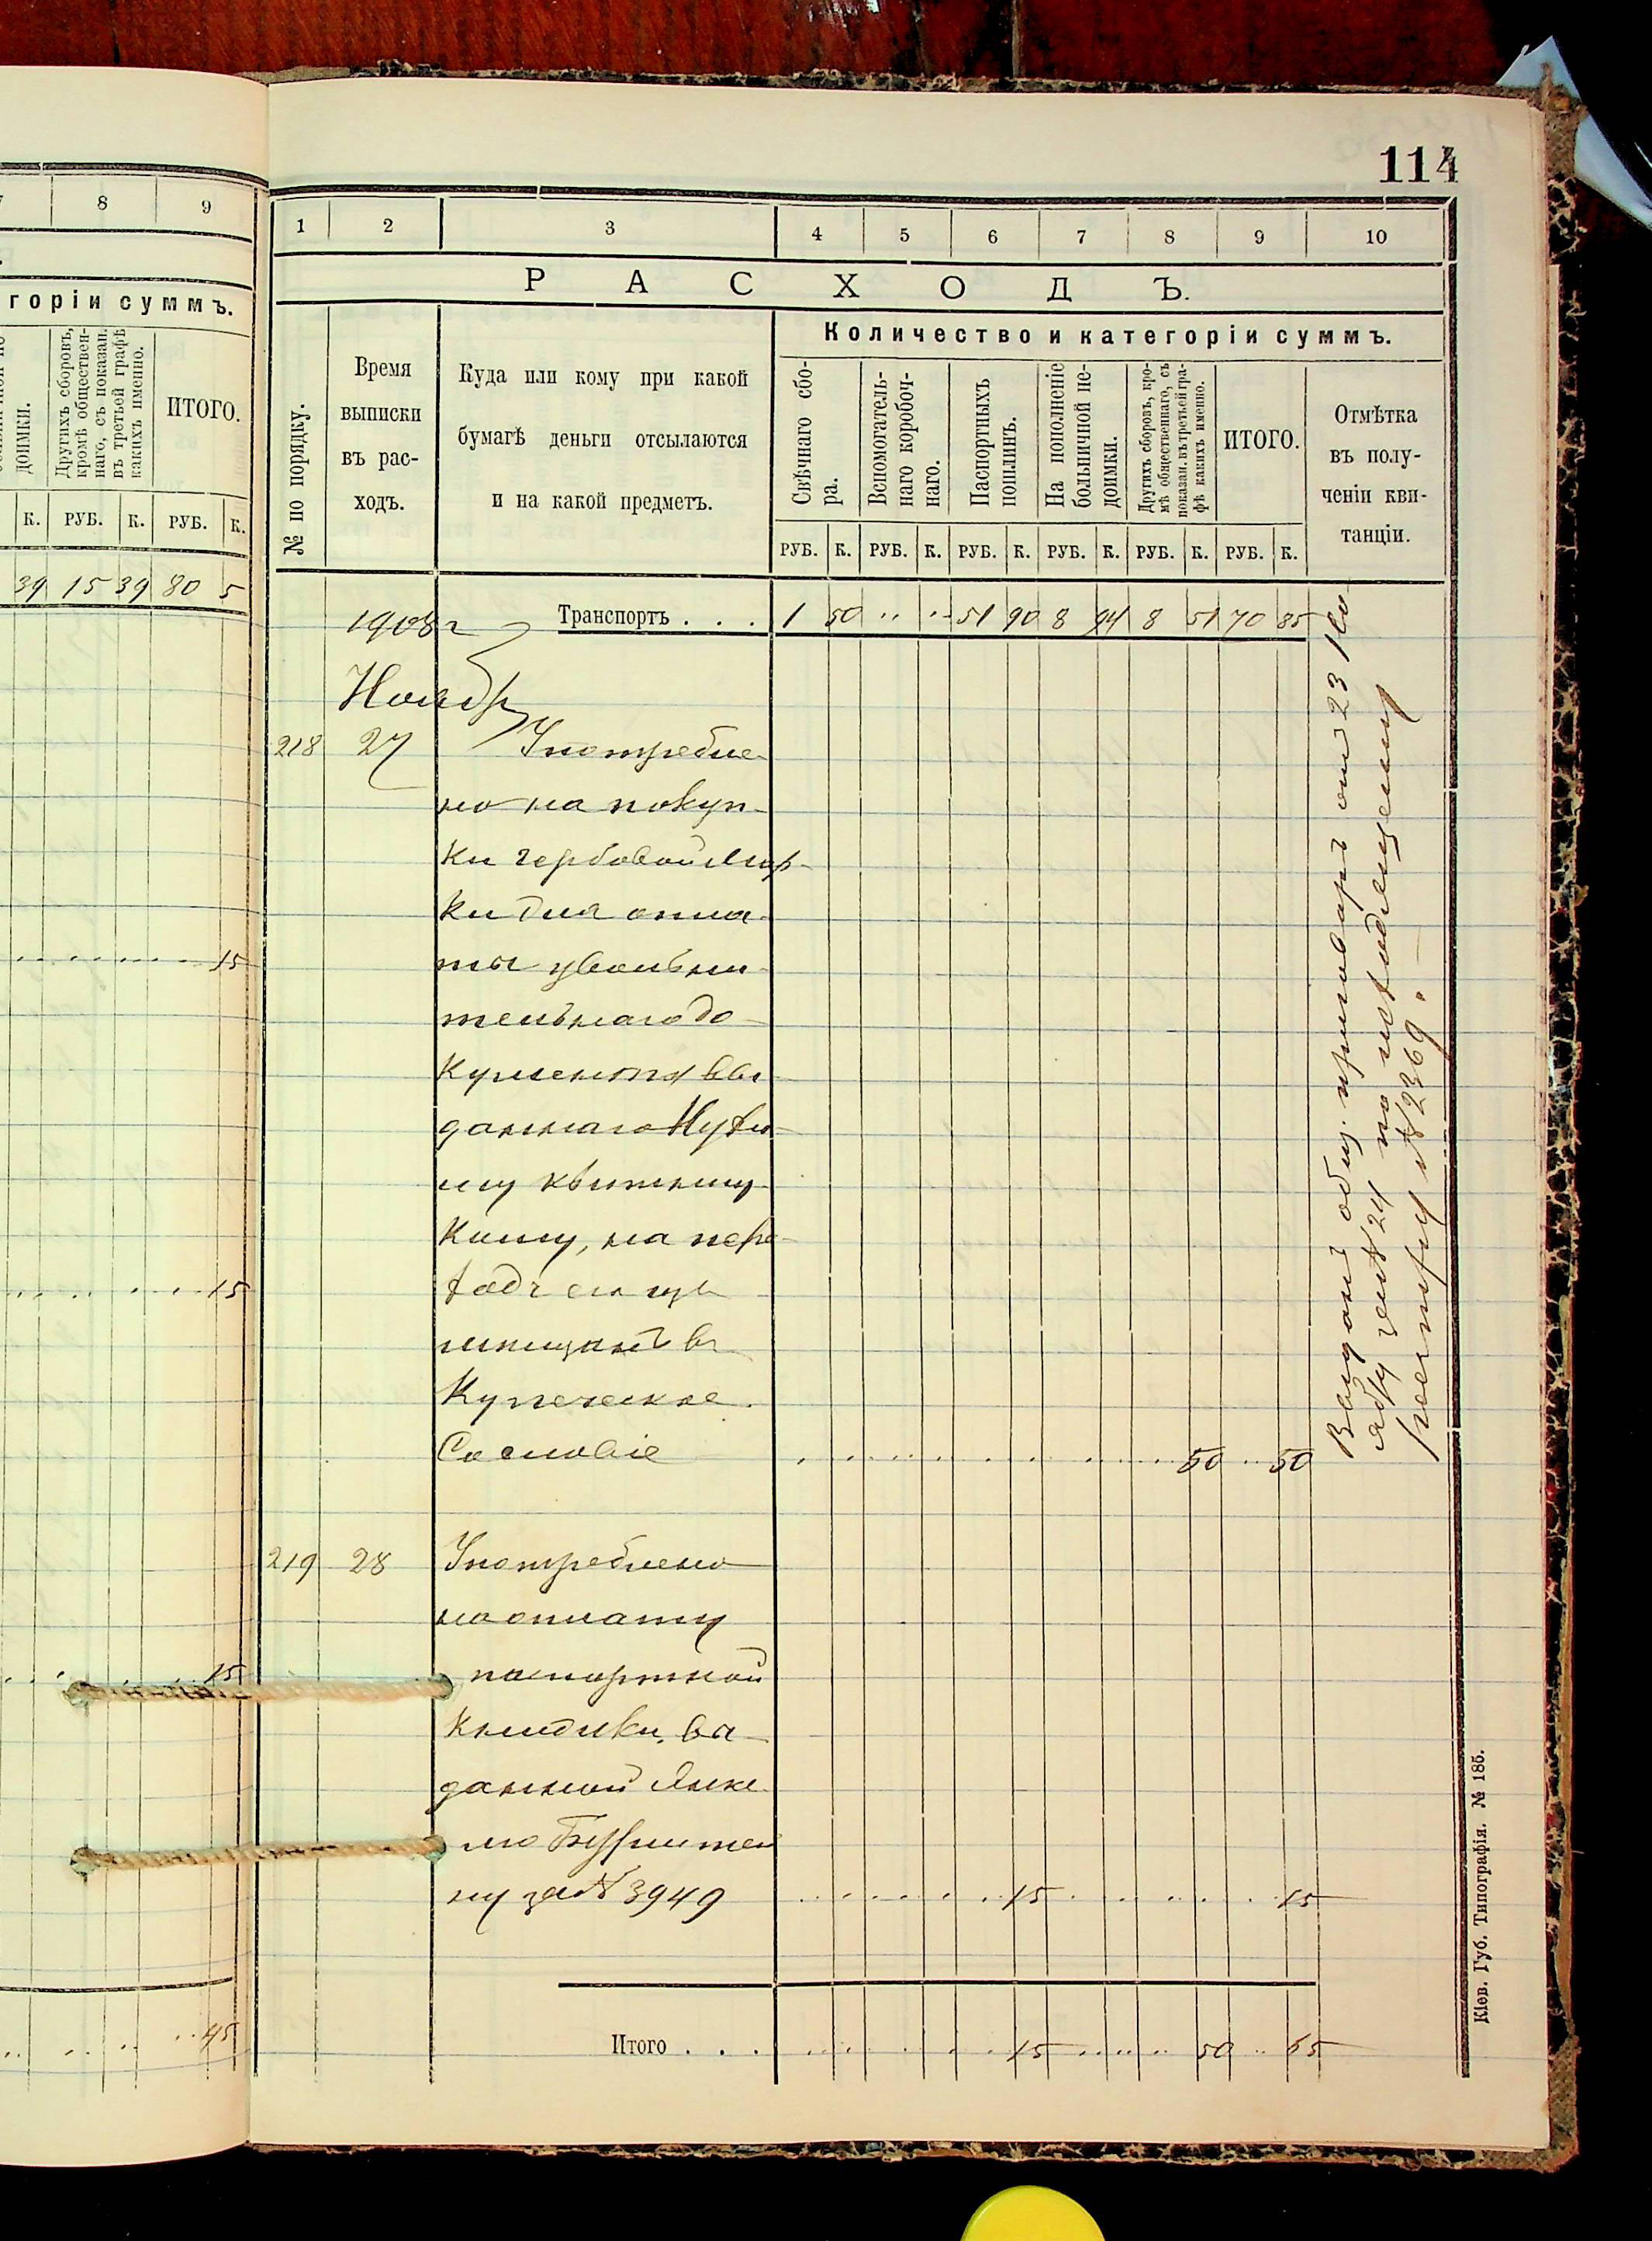 114
7 8 9
горіи суммъ.
доимки.
Другихъ сборовъ, кромѣ обществен-наго, съ показан. въ третьей графѣ какихъ именно.
ИТОГО.
К. РУБ. К. РУБ. К.
39 15 39 80 5
15
15
15
45
1 2 3 4 5 6 7 8 9 10
РАСХОДЪ.
№ по порядку.
Время
выписки
въ рас-
ходъ.
Куда или кому при какой
бумагѣ деньги отсылаются
и на какой предметъ.
Количество и категоріи суммъ.
Свѣчнаго сбо-
ра.
Вспомогатель-
наго коробоч-
наго.
Паспортныхъ
пошлинъ.
На пополненіе
больничной не-
доимки.
Другихъ сборовъ, кро-
мѣ общественнаго, съ
показан. въ третьей гра-
фѣ какихъ именно.
ИТОГО.
Отмѣтка
въ полу-
ченіи кви-
танціи.
РУБ. К. РУБ. К. РУБ. К. РУБ. К. РУБ. К. РУБ. К.
1908 г Транспортъ . . . 1 50 51 90 8 94 8 51 70 85
Ноябр
218 27 Употребле-
но на покуп-
ки гербовой мар-
ки для опла-
ты увольни-
тельнаго до-
кумента вы-
даннаго
му
кому, на пере-
ходъ
мещанъ въ
Купеческое
Сословіе 50 50
Выданъ общ. приговоръ отъ 23 Но
ября за № 24 по исходящему
реестру № 2369.
219 28 Употреблено
на оплату
паспортной
книжки, вы-
данной
ну за № 3949 15 15
Итого . . . 15 50 65
Кіев. Губ. Типографія. № 185.